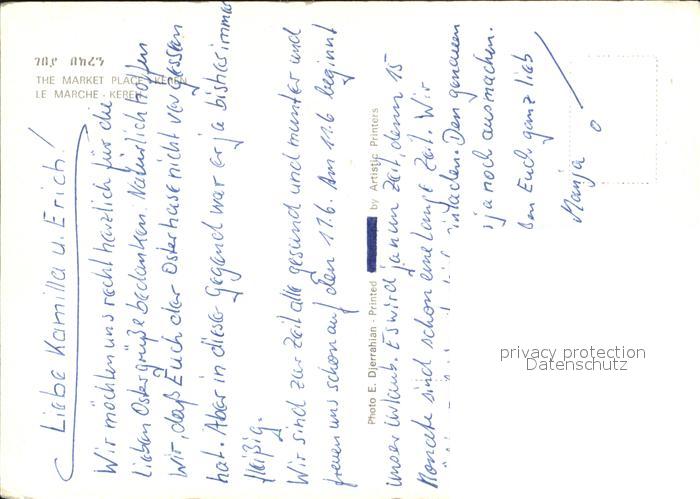 ገበያ በከረን
THE MARKET PLACE - KEREN
LE MARCHE - KEREN
Liebe Kamilla u. Erich!
Wir möchten uns recht herzlich für die
lieben Ostergrüße bedanken. Natürlich hoffen
wir, daß Euch der Osterhase nicht vergessen
hat. Aber in dieser Gegend war er ja bisher immer
fleißig.
Wir sind zur Zeit alle gesund und munter und
freuen uns schon auf den 11.6. Am 11.6 beginnt
unser Urlaub. Es wird ja nun Zeit, denn 15
Monate sind schon eine lange Zeit. Wir
einladen. Den genauen
ja noch ausmachen.
Euch ganz lieb
Manja
Photo E. Djerrahian - Printed by Artistic Printers
privacy protection
Datenschutz